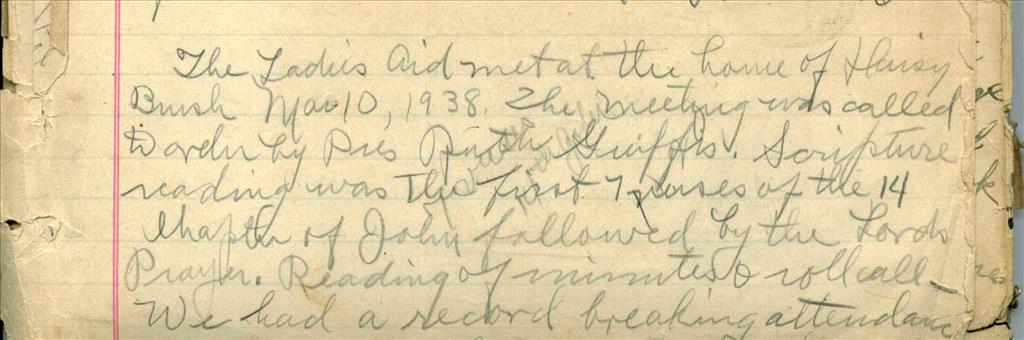 The Ladies Aid met at the home of Daisy
Bunsh Nov 10, 1938. The meeting was called
to order by Pres Ruth Griffis. Scripture
reading was the first 7 verses of the 14
Chapter of John followed by the Lords
Prayer. Reading of minutes & roll call
We had a record breaking attendanc